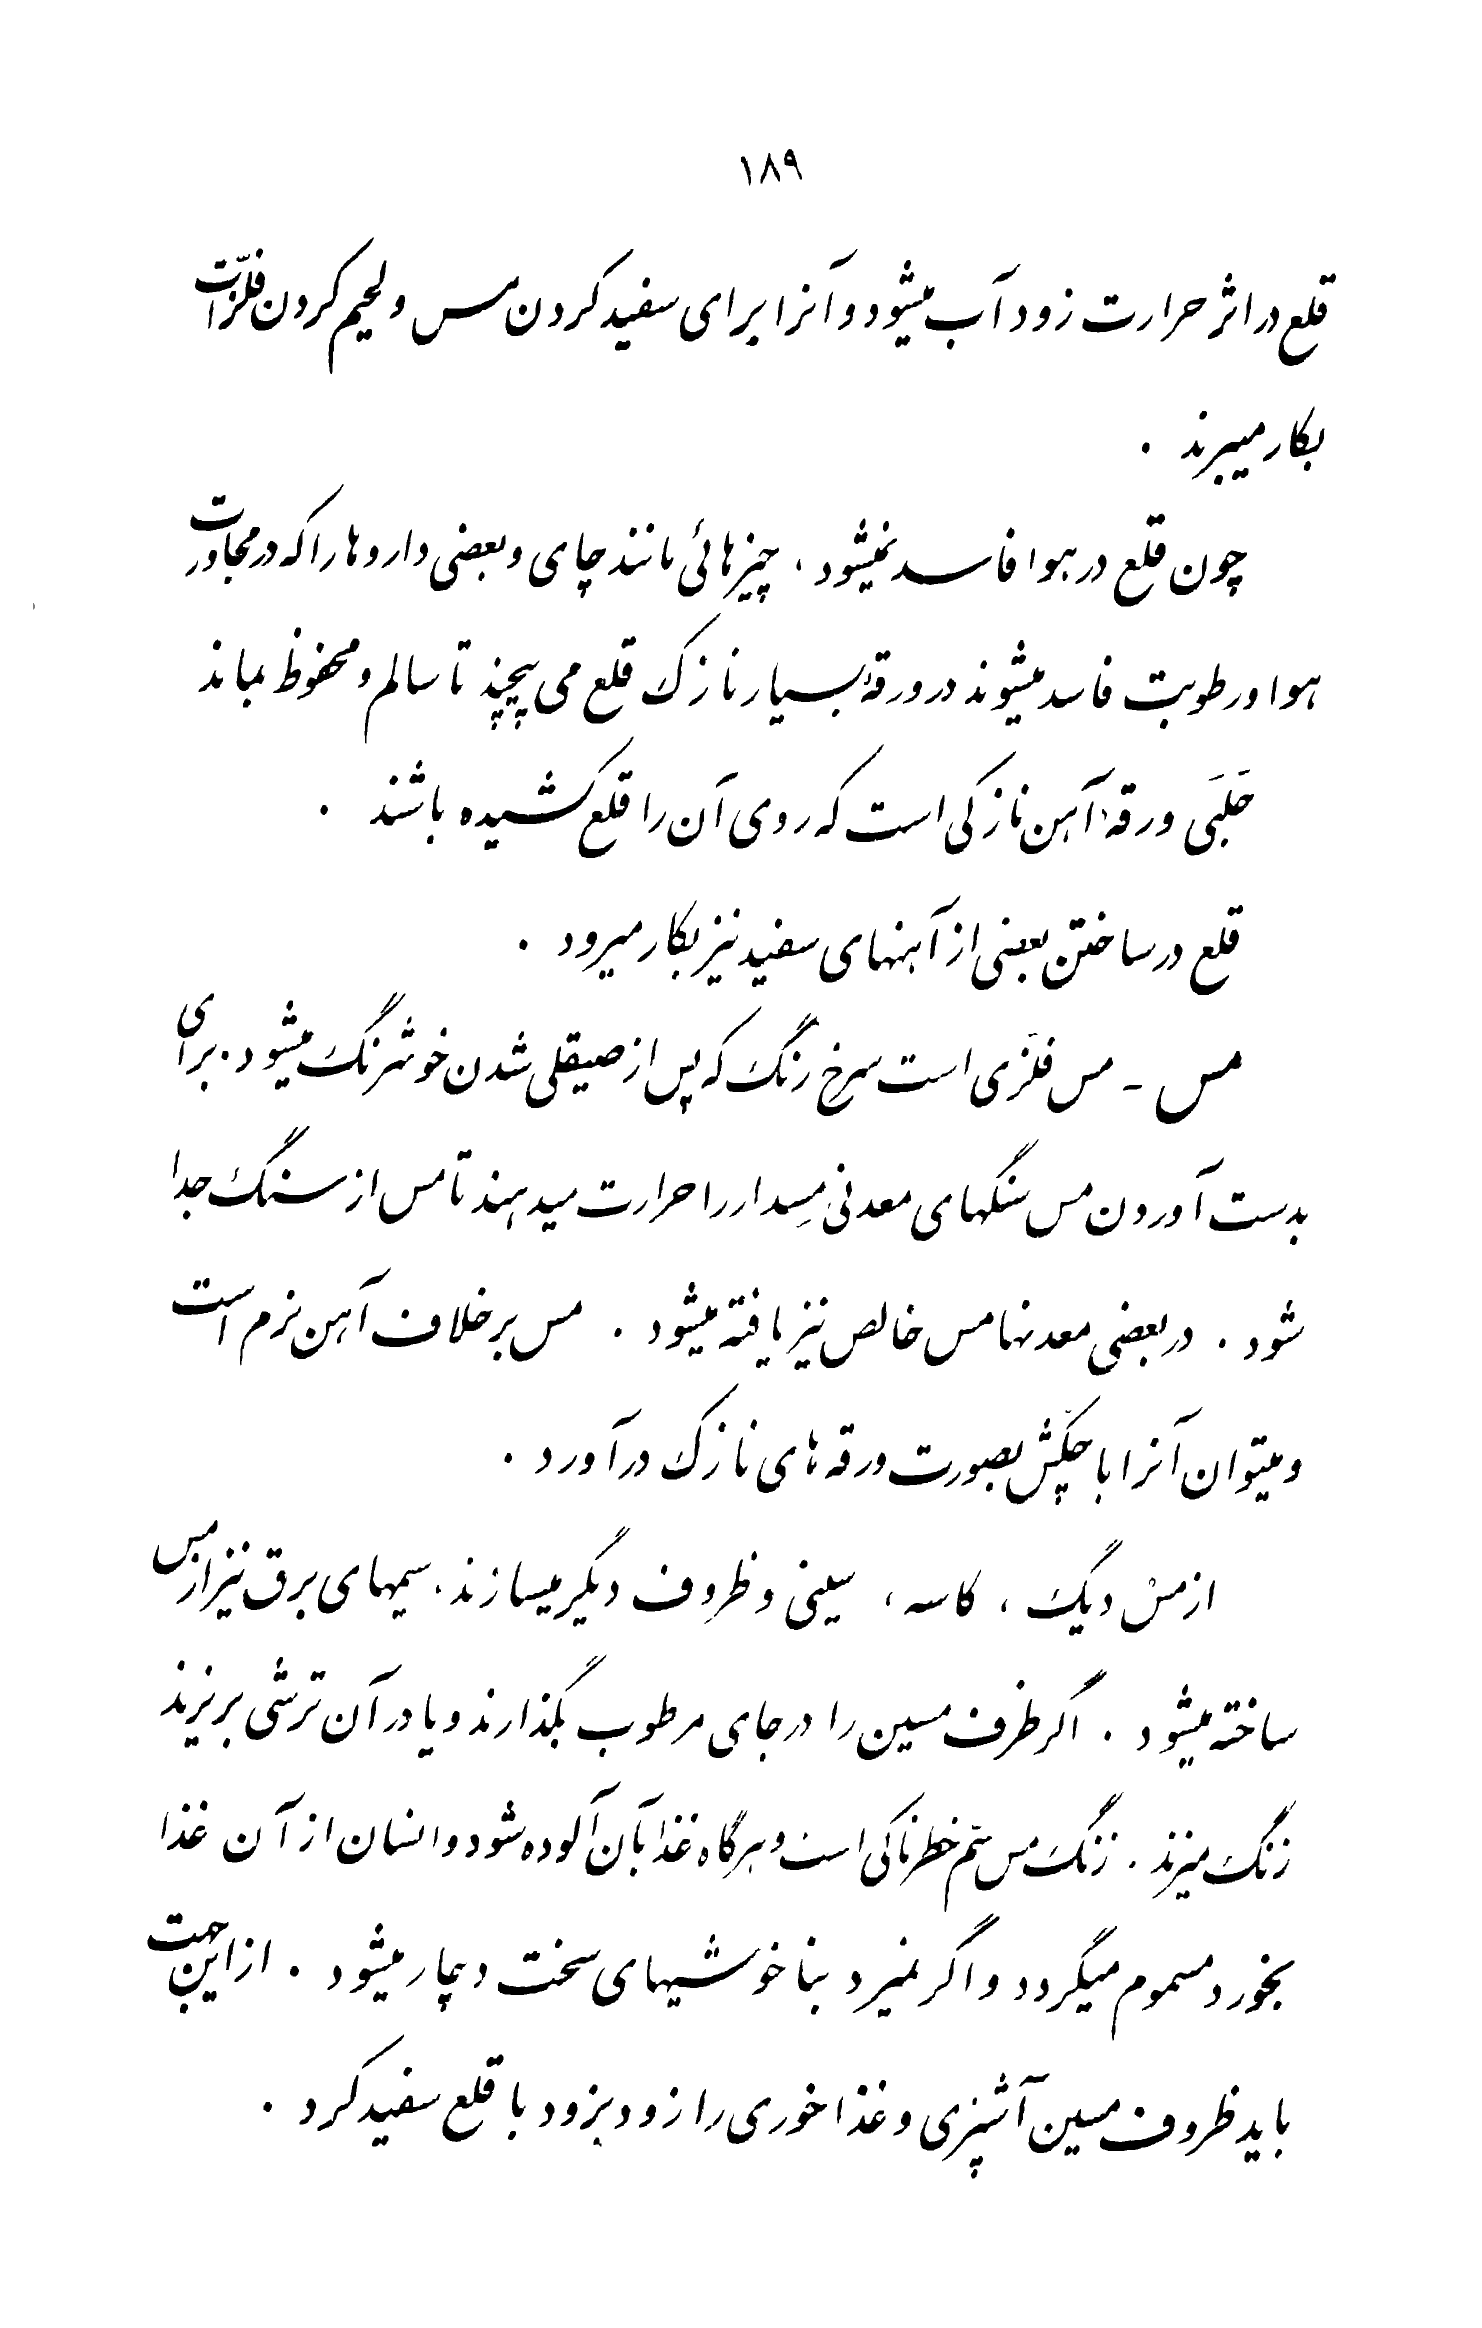 ۱۸۹
قلع در اثر حرارت زود آب میشود و آنرا برای سفید کردن مس و لحیم کردن فلزّات
بکار میبرند .
چون قلع در هوا فاسد نمیشود ، چیزهائی مانند چای و بعضی داروها را که در مجاورت
هوا و رطوبت فاسد میشوند در ورقهٔ بسیار نازک قلع می پیچند تا سالم و محفوظ بماند
حَلَبی ورقهٔ آهن نازکی است که روی آن را قلع کشیده باشند .
قلع در ساختن بعضی از آهنهای سفید نیز بکار میرود .
مس - مس فلزی است سرخ رنگ که پس از صیقلی شدن خوشرنگ میشود . برای
بدست آوردن مس سنگهای معدنی مِسدار را حرارت میدهند تا مس از سنگ جدا
شود . در بعضی معدنها مس خالص نیز یافته میشود . مس برخلاف آهن نرم است
و میتوان آنرا با چکّش بصورت ورقه های نازک درآورد .
از مس دیگ ، کاسه ، سینی و ظروف دیگر میسازند . سیمهای برق نیز از مس
ساخته میشود . اگر ظرف مسین را در جای مرطوب بگذارند و یا در آن ترشی بریزند
زنگ میزند . زنگ مس سّم خطرناکی است و هرگاه غذا بآن آلوده شود و انسان از آن غذا
بخورد مسموم میگردد و اگر نمیرد بناخوشیهای سخت دچار میشود . از این جهت
باید ظروف مسین آشپزی و غذاخوری را زود بزود با قلع سفید کرد .